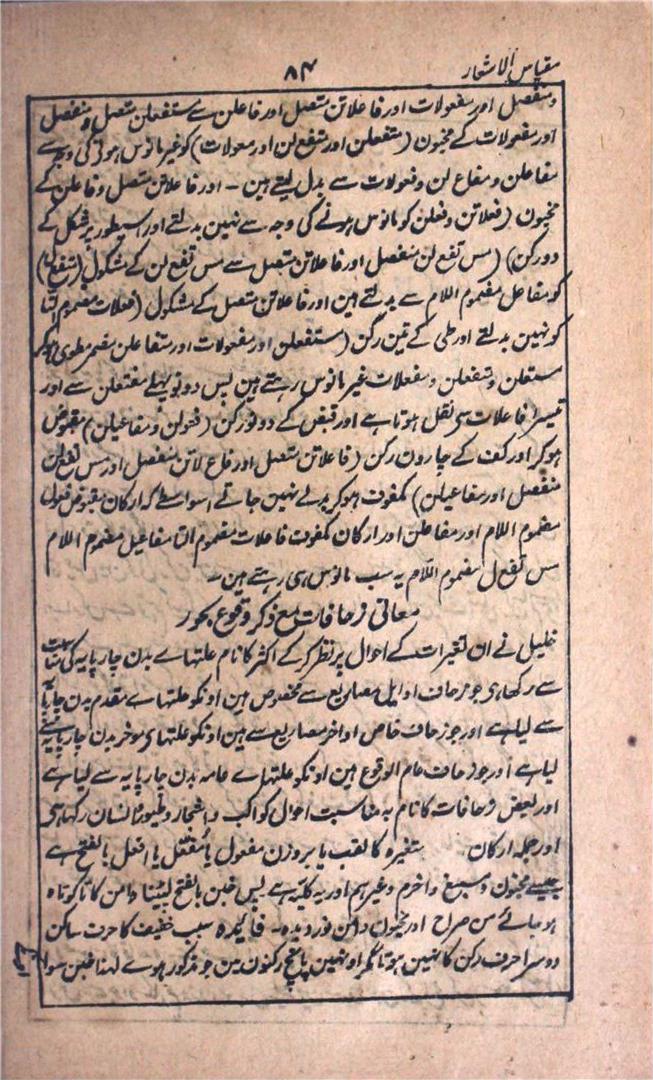 مقیاس الاشعار
۸۴
و منفصل اور مفعولات اور فاعلاتن متصل اور فاعلن سے مستفعلن متصل و منفصل
اور مفعولات کے مخبون (متفعلن اور متفع لن اور معولات) کو غیر مانوس ہونی کی وجہ سے
مفاعلن و مفاع لن و فعولات سے بدل لیتے ہین ۔ اور فاعلاتن متصل و فاعلن کے
مخبون (فعلاتن و فعلن کو مانوس ہونے کی وجہ سے نہین بدلتے اور اسیطور پر شکل کے
دو رکن) (مس تفع لن منفصل اور فاعلاتن متصل سے مس تفع لن کے مشکول (متفع ل)
کو مفاعل مضموم اللام سے بدلتے ہین اور فاعلاتن متصل کے مشکول (فعلات مضموم التا
کو نہین بدلتے اور طی کے تین رکن (مستفعلن اور مفعولات اور متفاعلن مضمر مطوی) ہوکر
مستعلن و متفعلن و مفعلات غیر مانوس رہتے ہین پس دونو پہلے مفتعلن سے اور
تیسرا فاعلات سے نقل ہوتا ہے اور قبض کے دونو رکن (فعولن و مفاعیلن) مقبوض
ہوکر اور کف کے چارون رکن (فاعلاتن متصل اور فاع لاتن منفصل اور مس تفع لن
منفصل اور مفاعیلن) مکفوف ہوکر بدلے نہین جاتے اسواسطے کہ ارکان مقبوض فعول
مضموم اللام اور مفاعلن اور ارکان مکفوف فاعلات مضموم التا مفاعیل مضموم اللام
مس تفع ل مضموم اللام یہ سب مانوس ہی رہتے ہین ۔
معانی زحافات مع ذکر وقوع بحور
خلیل نے ان تغیرات کے احوال پر نظر کرکے اکثر کا نام علتہاے بدن چارپایہ کی مناسبت
سے رکھا ہی جو زحاف اوایل مصاریع سے مخصوص ہین اونکو علتہاے مقدم بدن چارپایہ
سے لیا ہے اور جو زحاف خاص اواخر مصاریع سے ہین اونکو علتہای موخر بدن چارپایہ سے
لیا ہے اور جو زحاف عام الوقوع ہین اونکو علتہاے عامہ بدن چارپایہ سے لیا ہے
اور بعض زحافات کا نام یہ مناسبت احوال کواکب و اشجار و طیور و انسان رکھا ہی
اور جملہ ارکان متغیرہ کا لقب یا بر وزن مفعول یا مفعل یا افعل بالفتح ہے
جیسے مخبون و مسبغ و اخرم وغیرہم اور یہ کلیہ ہے پس خبن بالفتح لپیٹنا دامن کا تا کوتاہ
ہو جائے من صراح اور مخبون دامن نوردیدہ ۔ فائدہ سبب خفیف کا حرف ساکن
دوسرا حرف رکن کا نہین ہوتا مگر اونہین پانچ رکنون مین جو مذکور ہوے لہذا خبن سوا